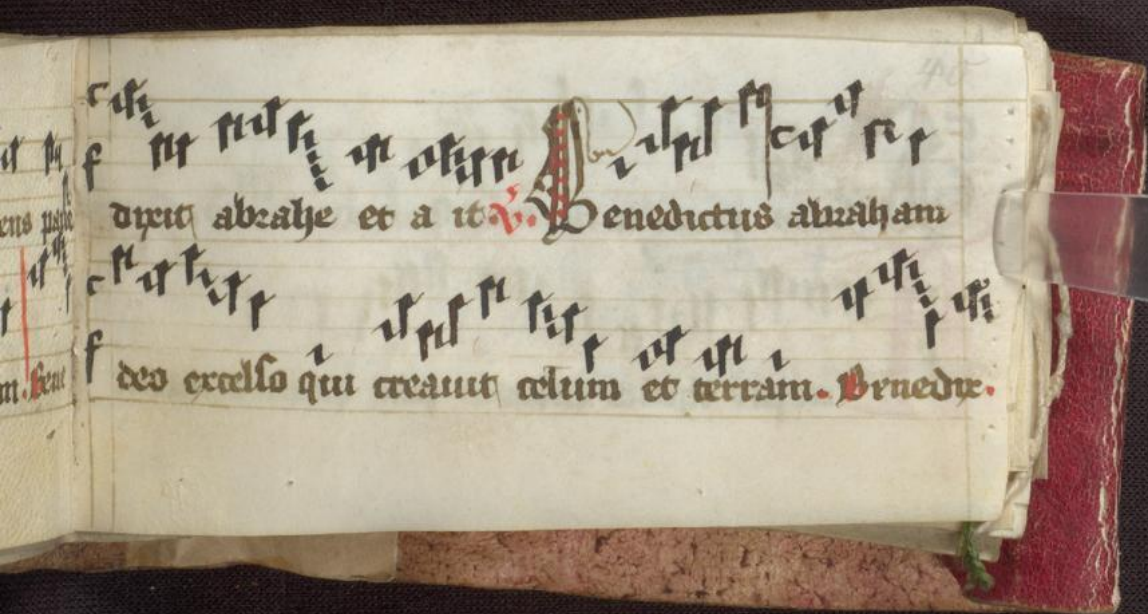 dixit abrahe et a it V. Benedictus abraham
deo excelso qui creauit celum et terram. Benedix.